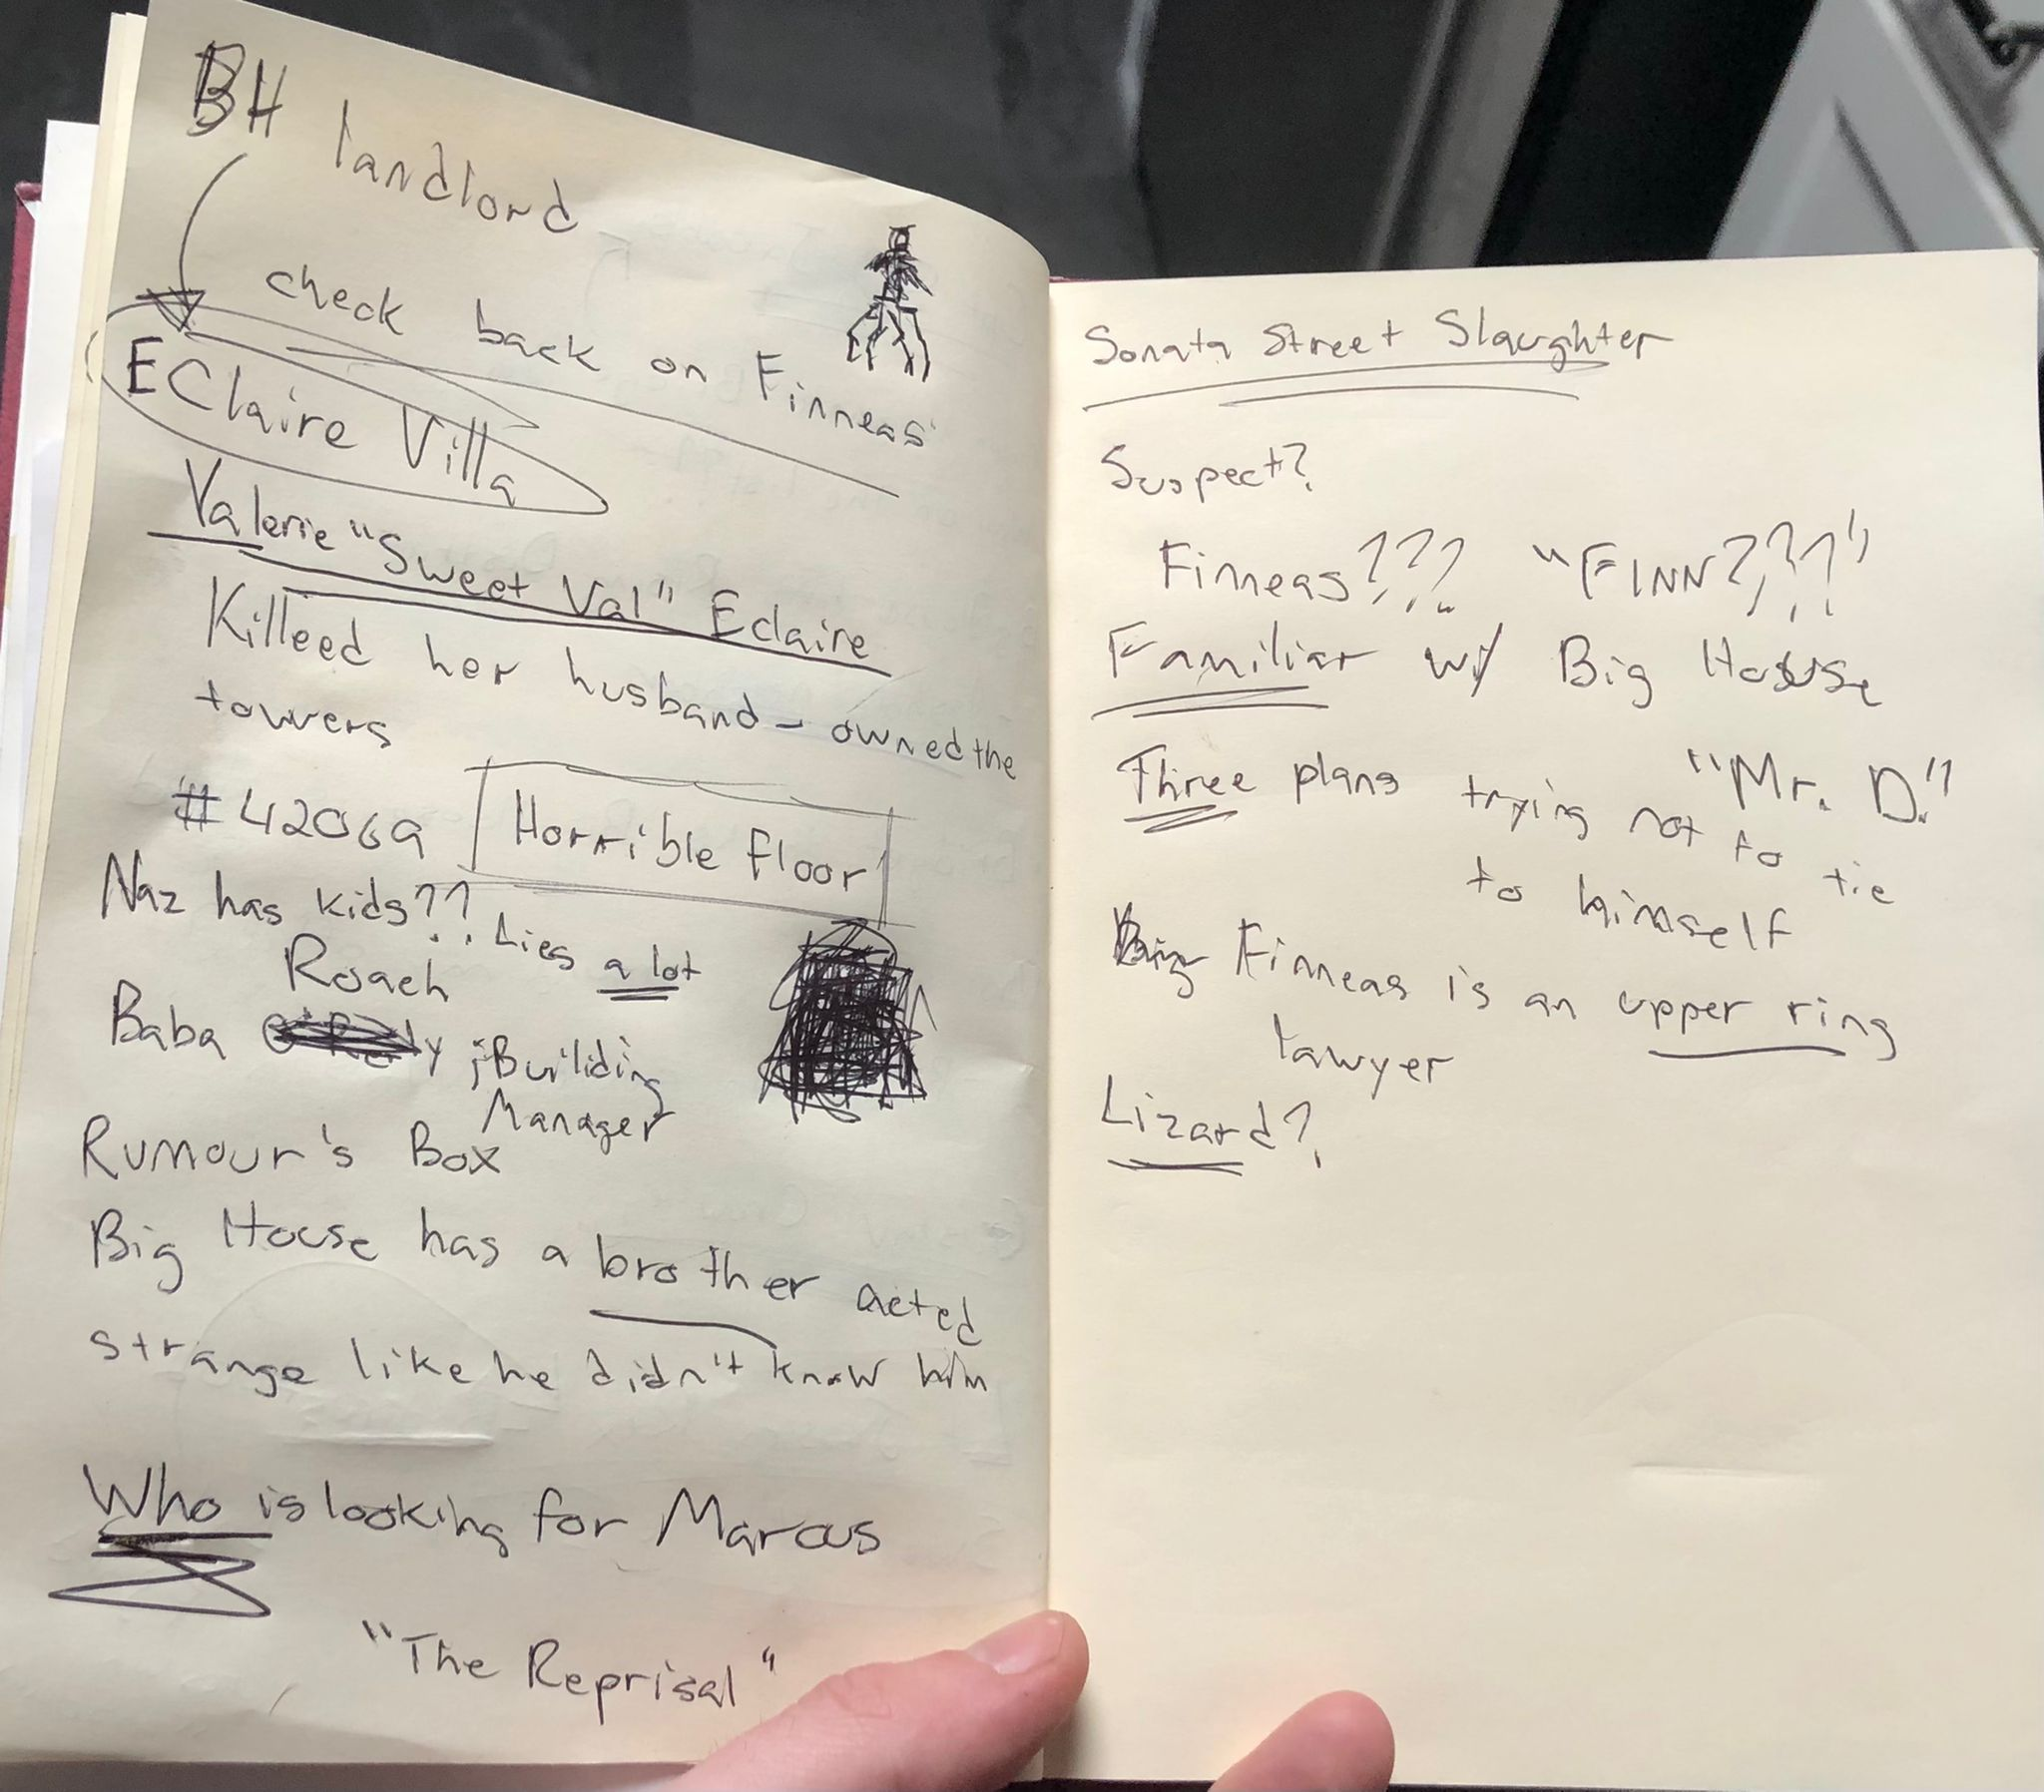 BH landlord
check back on Finneas
EClaire Villa
Valerie "Sweet Val" Eclaire
Killeed her husband - owned the
towers
#42069 Horrible floor
Naz has kids?? Lies a lot
Roach
Baba ; Builiding
Manager
Rumour's Box
Big House has a brother acted
strange like he didn't know him
Who is looking for Marcus
"The Reprisal"
Sonata Street Slaughter
Suspect?
Finneas??? "FINN????"
Familiar w/ Big House
Three plans "Mr. D."
trying not to tie
to himself
Finneas is an upper ring
lawyer
Lizard?